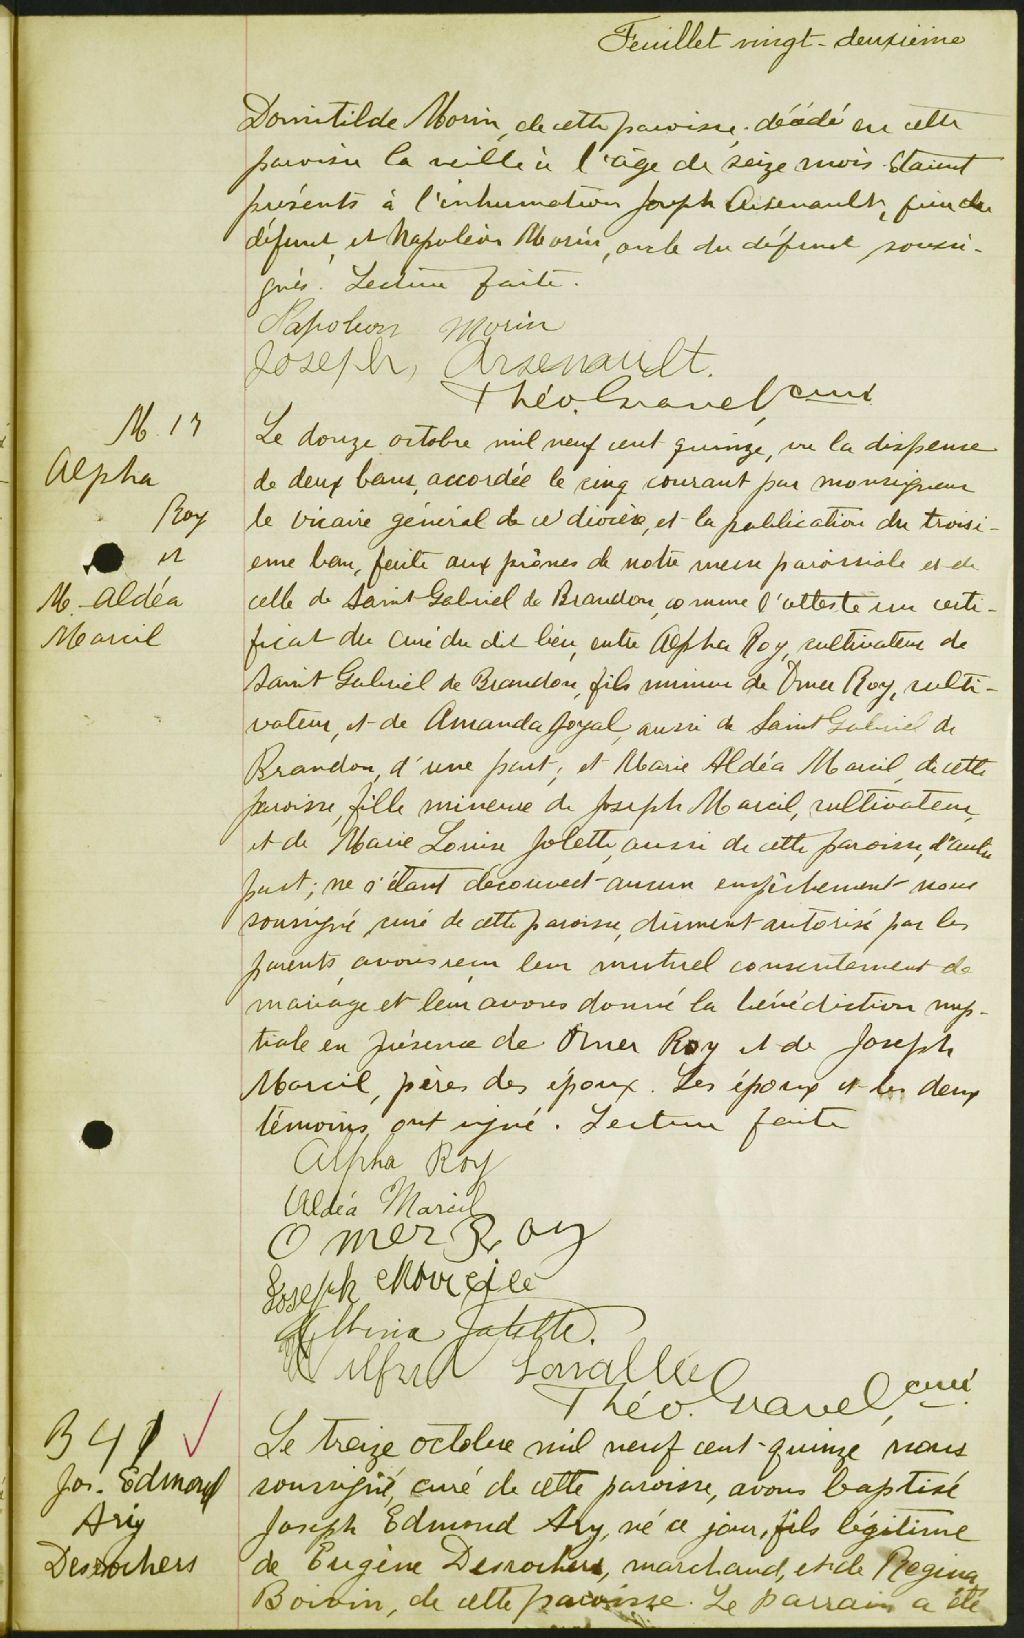 Feuillet vingt-deuxième
Domitilde Morin, de cette paroisse, décédé en cette
paroisse la veille à l'âge de seize mois. Étaient
présents à l'inhumation Joseph Arsenault, père du
défunt, et Napoléon Morin, oncle du défunt soussi-
gnés. Lecture faite.
Napoleon Morin
Joseph Arsenault.
Théo. Gravel, curé
M. 17
Alpha
Roy
et
M. Aldéa
Marcil
Le douze octobre mil neuf cent quinze, vu la dispense
de deux bans, accordée le cinq courant par monsigneur
le vicaire général de ce diocèse, et la publication du troisi-
eme ban, faite aux prônes de notre messe paroissiale et de
celle de Saint Gabriel de Brandon, comme l'atteste un certi-
ficat du curé du dit lieu, entre Alpha Roy, cultivateur de
Saint Gabriel de Brandon, fils mineur de Omer Roy, culti-
vateur, et de Amanda Joyal, aussi de Saint Gabriel de
Brandon, d'une part; et Marie Aldéa Marcil, de cette
paroisse, fille mineure de Joseph Marcil, cultivateur,
et de Marie Louise Jolette, aussi de cette paroisse, d'autre
part; ne s'étant découvert aucun empêchement nous
soussigné curé de cette paroisse, dûment autorisé par les
parents, avons reçu leur mutuel consentement de
mariage et leur avons donné la bénédiction nup-
tiale en présence de Omer Roy et de Joseph
Marcil, pères des époux. Les époux et les deux
témoins ont signé. Lecture faite
Alpha Roy
Aldéa Marcil
Omer Roy
Joseph
Albina Jolette.
Wilfrid Lavallée
Théo. Gravel, curé.
B 41
Jos. Edmond
Ary
Desrochers
Le treize octobre mil neuf cent-quinze nous
soussigné, curé de cette paroisse, avons baptisé
Joseph Edmond Ary, né ce jour, fils légitime
de Eugène Desrochers, marchand, et de Regina
Boivin, de cette paroisse. Le parrain a été